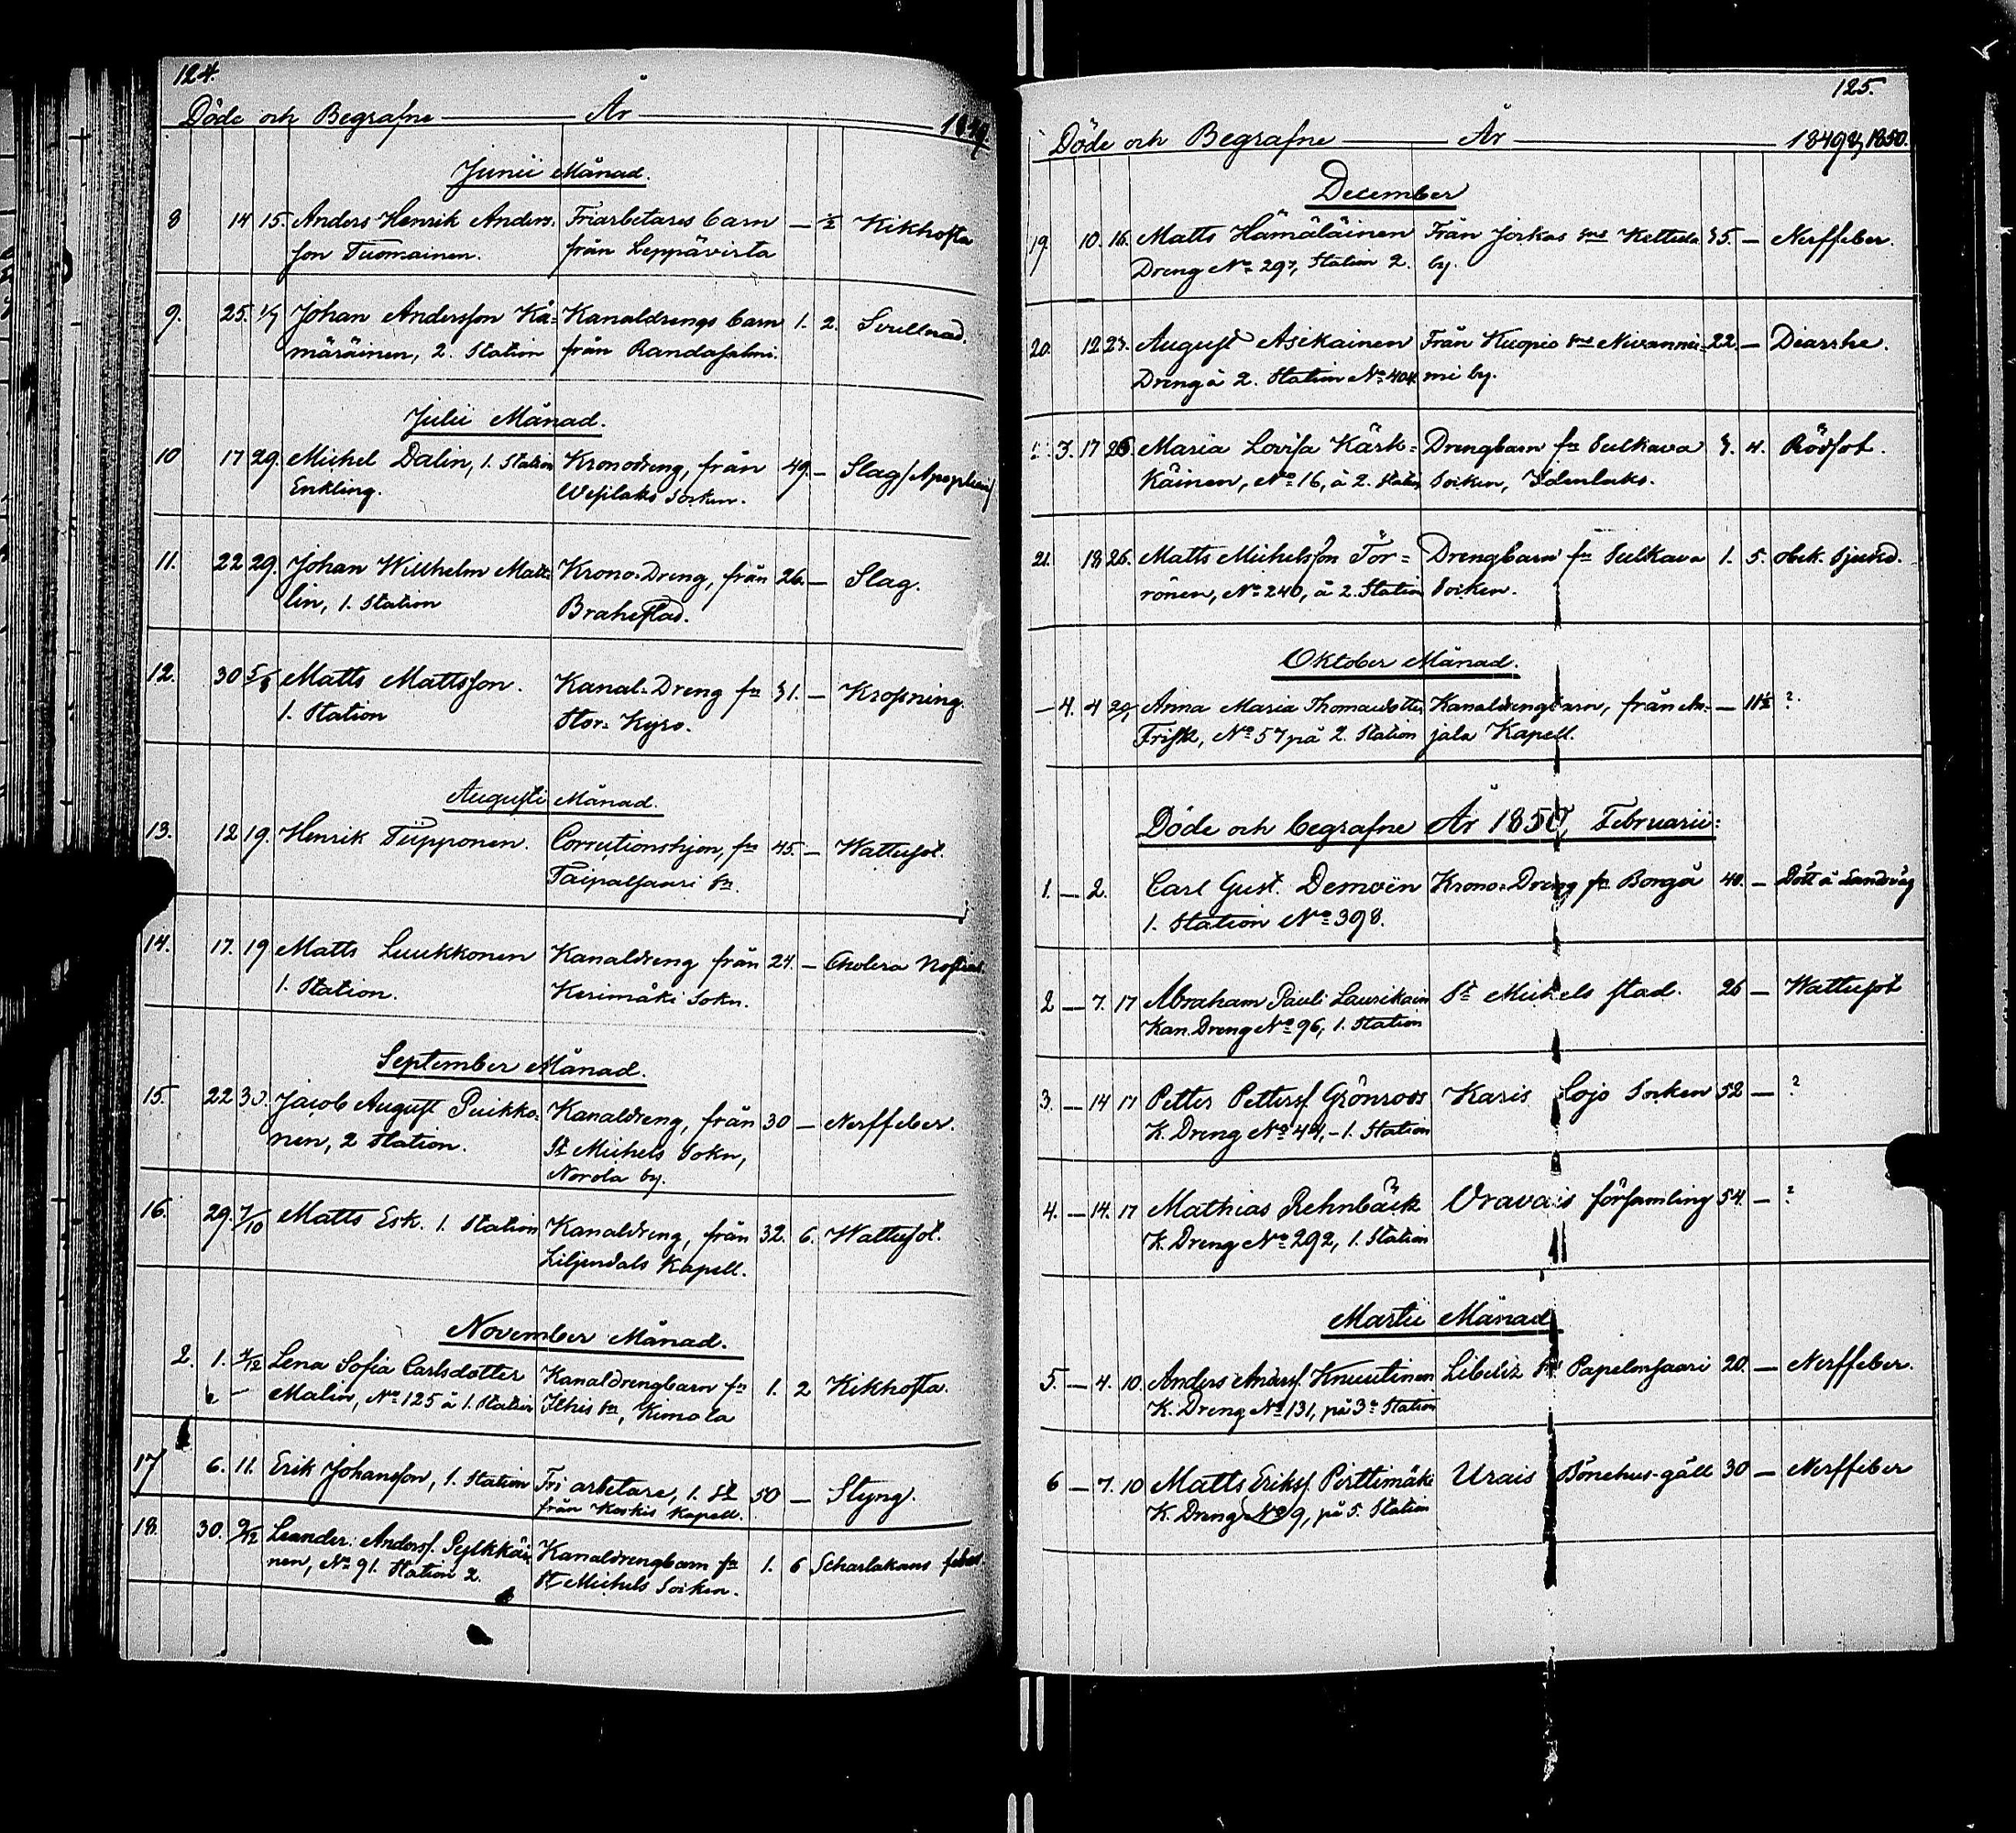 124.
Döde och Begrafne — År — 1849.
Junii Månad.
8 14 15. Anders Henrik Anders- Friarbetares barn — ½ Kikhosta
son Tuomainen. från Leppävirta
9. 25. 1/7 Johan Andersson Kä- Kanaldrengs barn 1. 2. Svullnad.
märäinen, 2. Station från Randasalmi.
Julii Månad.
10 17 29. Michel Dalin, 1. Station Kronodreng, från 49. — Slag
Enkling. Wesilaks Socken.
11. 22 29. Johan Willhelm Matt- Krono-Dreng, från 26. — Slag.
lin, 1. Station Brahestad.
12. 30 5/8 Matts Mattsson. Kanal-Dreng fn 31. —
1. Station Stor-Kyro.
Augusti Månad.
13. 12 19. Henrik Tiipponen. Corrutionshjon, fn 45. — Wattusot.
Taipalsaari Sn.
14. 17. 19 Matts Luukkonen Kanaldreng från 24. — Cholera Nostras.
1. Station. Kerimäki Sokn.
September Månad.
15. 22 30. Jacob August Puikko- Kanaldreng, från 30 — Nerffeber.
nen, 2 Station. St Michels Sokn,
Norola by.
16. 29 7/10 Matts Esk. 1. Station Kanaldreng, från 32. 6. Wattusot.
Liljendals Kapell.
November Månad.
2. 1. 4/12 Lena Sofia Carlsdotter Kanaldrengbarn fn 1. 2 Kikhosta.
Malin, No 125 å 1. Station Ithis Sn, Kimola
17 6. 11. Erik Johansson, 1. Station Fri arbetare, 1. St 50 — Styng.
från Koskis Kapell.
18. 30. 9/12 Leander Anderss. Pylkkäi- Kanaldrengbarn fn 1. 6 Scharlakans feber
nen, No 91. Station 2. St Michels Socken.
125.
Döde och Begrafne — År — 1849 & 1850.
December
19. 10. 16. Matts Hämäläinen Från Jorkas Sne Kettula 35. — Nerffeber.
Dreng No 297, Station 2. by.
20. 12 23. August Asikainen Från Kuopio Sne Nivannie- 22. — Diarrhe.
Dreng å 2. Station No 404. mi by.
3. 17 26 Maria Lovisa Kärk- Drengbarn fn Sulkava 3. 4. Rödsot.
käinen, No 16, å 2. Station Socken, Idenlaks.
21. 18 26. Matts Michelsson Tör- Drengbarn fn Sulkava 1. 5. obek. Sjukd.
rönen, No 240, å 2. Station Socken.
Oktober Månad.
— 4. 4 Anna Maria Thomasdotter Kanaldrengbarn, från An- — 11½ ?
Frisk, No 57 på 2. Station jala Kapell.
Döde och begrafne År 1850, Februarii:
1. — 2. Carl Gust. Demoën Krono-Dreng fn Borgå 40. — Dött å Landsväg
1. Station No 398.
2 — 7. 17 Abraham Pauli Laurikain St Michels stad. 26 — Wattusot
Kan. Dreng No 96, 1. Station
3. — 14 17 Petter Petterss. Grönroos Karis Lojo Socken 52 — ?
K. Dreng No 44, - 1. Station
4. — 14. 17 Mathias Rehnbäck Oravais församling 54. — ?
K. Dreng No 292, 1. Station
Martii Månad
5. — 4. 10. Anders Anderss. Knuutinen Libeliz Sn Papelonsaari 20. — Nerffeber.
K. Dreng No 131, på 3e Station
6 — 7. 10 Matts Erikss. Pirttimäki Urais Bönehus-gäll 30 — Nerffeber
K. Dreng No 9, på 5. Station